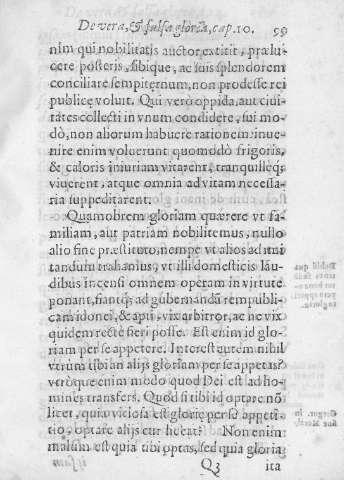 De vera, & falsa gloria, cap. 10. 59
nim qui nobilitatis auctor extitit, prælu-
cere posteris, sibique, ac suis splendorem
conciliare sempiternum, non prodesse rei
publicę volunt. Qui verò oppida, aut ciui-
tates collecti in vnum condidere, sui mo-
dò, non aliorum habuere rationem: inue-
nire enim voluerunt quomodò frigoris,
& caloris iniuriam vitarent, tranquilleq;
viuerent, atque omnia ad vitam necessa-
ria suppeditarent.
Quamobrem gloriam quærere vt fa-
miliam, aut patriam nobilitemus, nullo
alio fine præstituto, nempe vt alios ad imi
tandum trahamus, vt illi domesticis lāu-
dibus incensi omnem operam in virtute
ponant, fiantq; ad gubernandā rempubli-
cam idonei, & apti, vix arbitror, ac ne vix
quidem rectè fieri posse. Est enim id glo-
riam per se appetere. Interest autem nihil
vtrum tibi an alijs gloriam per se appetas:
vtròque enim modo quod Dei est ad ho-
mines transfers. Quod si tibi id optare nō
licet, quia viciosa est glorię per se appeti-
tio, optare alijs cur liceat? Non enim
malum est quia tibi optas, sed quia gloria
Q3 ita